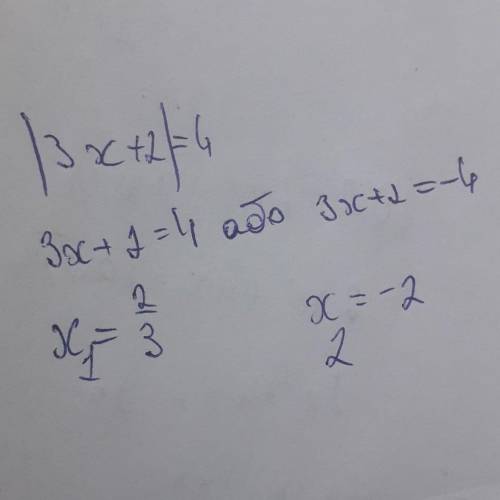 |3x+2|=4
3x+2=4 або 3x+2=-4
x₁=2/3 x₂=-2